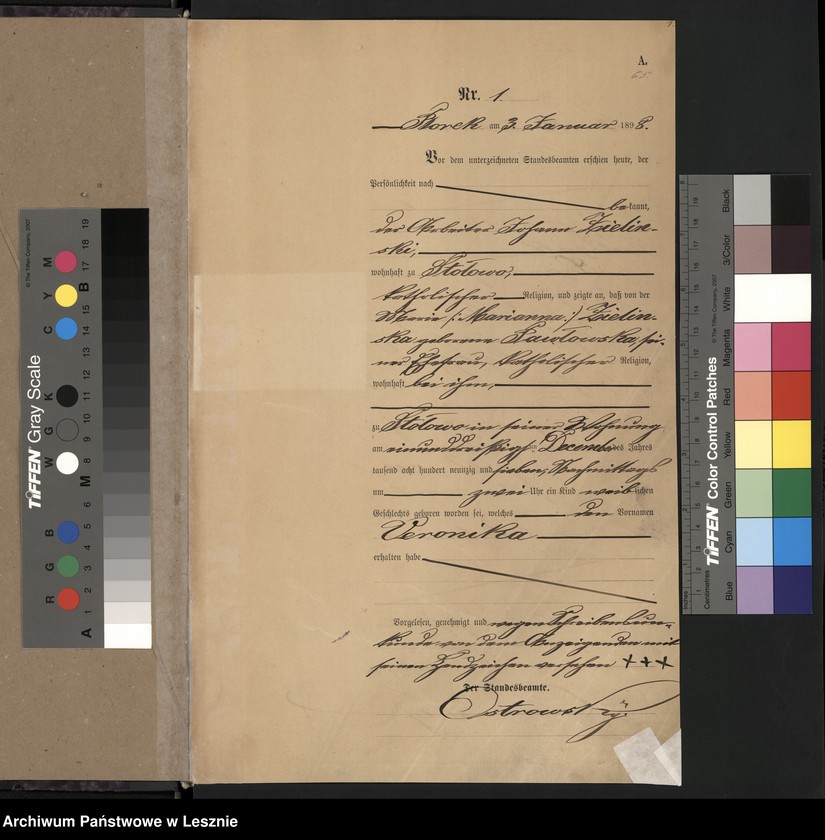 A.
65.
Nr. 1.
Borek am 3. Januar 1898.
Vor dem unterzeichneten Standesbeamten erschien heute, der
Persönlichkeit nach
bekannt,
der Arbeiter Johann Zielin-
ski,
wohnhaft zu Stołowo,
katholischer Religion, und zeigte an, daß von der
Maria /: Marianna :/ Zielin-
ska geborene Pawłowska, sei-
ner Ehefrau, katholischer Religion,
wohnhaft bei ihm,
zu Stołowo in seiner Wohnung
am einunddreißigsten December des Jahres
tausend acht hundert neunzig und sieben, Nachmittags
um zwei Uhr ein Kind weiblichen
Geschlechts geboren worden sei, welches den Vornamen
Veronika
erhalten habe
Vorgelesen, genehmigt und wegen Schreibensun-
kunde von dem Anzeigenden mit
seinen Handzeichen versehen +++
Der Standesbeamte.
Ostrowski
TIFFEN Gray Scale
© The Tiffen Company, 2007
R G B W G K C Y M
A 1 2 3 4 5 6 M 8 9 10 11 12 13 14 15 B 17 18 19
TIFFEN Color Control Patches
© The Tiffen Company, 2007
Blue Cyan Green Yellow Red Magenta White 3/Color Black
Inches
Centimetres
Archiwum Państwowe w Lesznie